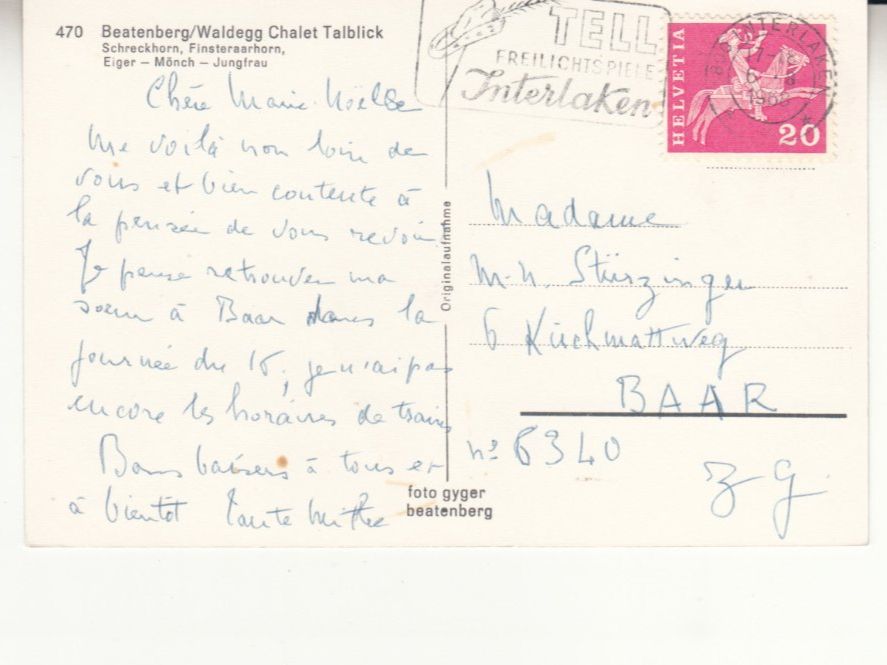 470 Beatenberg/Waldegg Chalet Talblick
Schreckhorn, Finsteraarhorn,
Eiger – Mönch – Jungfrau
TELL
FREILICHTSPIELE
Interlaken
HELVETIA
20
INTERLAKEN
Chère Marie Noëlle
me voilà non loin de
vous et bien contente à
la pensée de vous revoir
Je pense retrouver ma
soeur à Baar dans la
journée du 15, je n'ai pas
encore les horaires de trains
Bons baisers à tous et
à bientôt Tante
Originalaufnahme
foto gyger
beatenberg
Madame
M-N. Stürzinger
6 Kirchmattweg
BAAR
n° 6340
Zg.